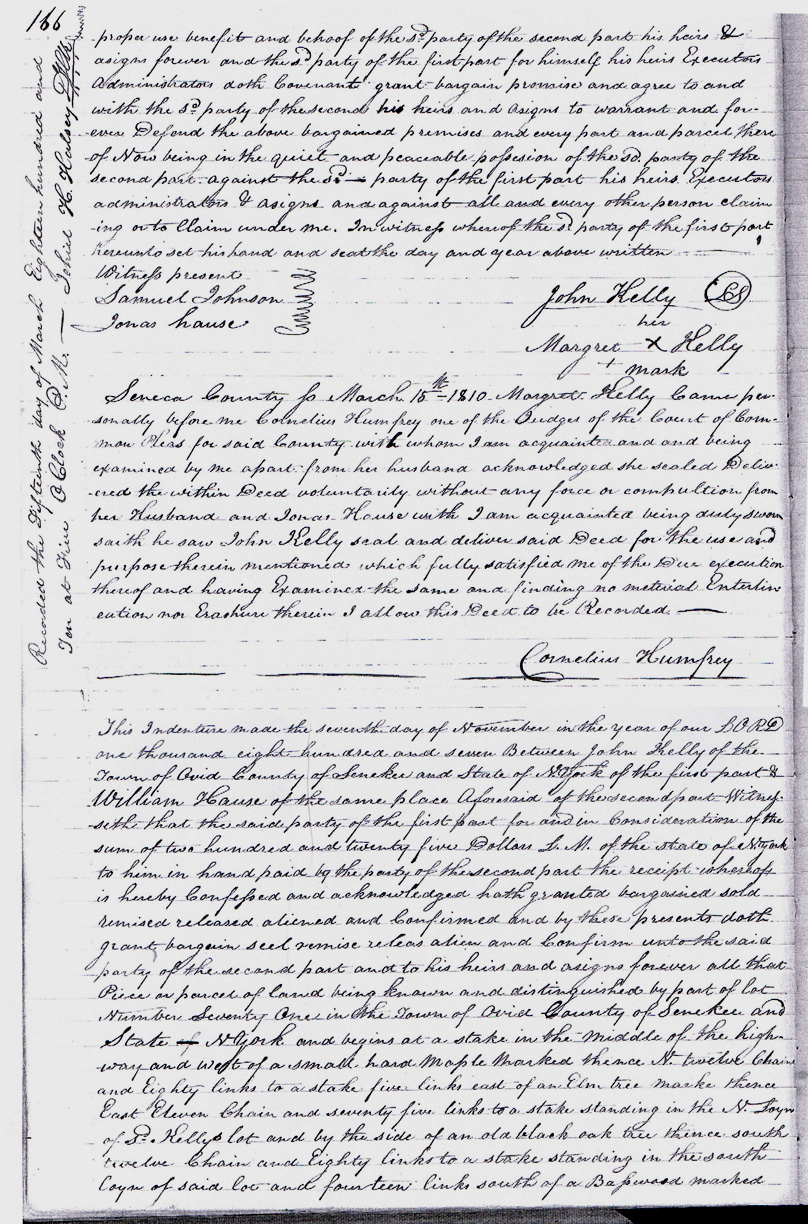 166
proper use benefit and behoof of the sd. party of the second part his heirs &
asigns forever and the sd. party of the first part for himself his heirs Executors
Administrators doth Covenant grant bargain promise and agree to and
with the sd. party of the second his heirs and asigns to warrant and for-
ever Defend the above bargained premises and every part and parcel there
of Now being in the quiet and peaceable possesion of the sd. party of the
second part against the sd. — party of the first part his heirs Executors
administrators & asigns and against all and every other person claim
-ing or to Claim under me. In witness whereof the sd. party of the first part
hereunto set his hand and seal the day and year above written
Witness present
Samuel Johnson
Jonas hause
John Kelly LS
her
Margret X Kelly
mark
Seneca County ss March 15th 1810 Margret Kelly Came per-
sonally before me Cornelius Humfrey one of the Judges of the Court of Com-
mon Pleas for said County with whom I am acquainted and and being
examined by me apart from her husband acknowledged she sealed Deliv-
ered the within Deed voluntarily without any force or compultion from
her Husband and Jonas House with I am acquainted being duly sworn
saith he saw John Kelly seal and deliver said Deed for the use and
purpose therein mentioned which fully satisfied me of the Due execution
thereof and having Examined the same and finding no meterial Enterlin
eation nor Erashure therein I allow this Deed to be Recorded —
Cornelius Humfrey
Recorded the Fifteenth day of March Eighteen hundred and
Ten at Five OClock P. M. — Jehiel H. Halsey Clk
This Indenture made the seventh day of November in the year of our LORD
one thousand eight hundred and seven Between John Kelly of the
Town of Ovid County of Senekee and State of NYork of the first part &
William Hause of the same place Aforesaid of the second part Witnes-
seth that the said party of the first part for and in Consideration of the
sum of two hundred and twenty five Dollars L. M. of the state of NYork
to him in hand paid by the party of the second part the receipt whereof
is hereby Confessed and acknowledged hath granted bargained sold
remised released aliened and Confirmed and by these presents doth
grant bargain seel remise releas alien and Confirm unto the said
party of the second part and to his heirs and asigns forever all that
Piece or parcel of land being known and distinguished by part of lot
Number Seventy One in the Town of Ovid County of Senekee and
State of NYork and begins at a stake in the middle of the high-
way and west of a small hard Maple Marked thence N. twelve Chain
and Eighty links to a stake five links east of an Elm tree marke thence
East Eleven Chain and seventy five links to a stake standing in the N. Loyn
of Sd. Kellys lot and by the side of an old black oak tree thence south
twelve Chain and Eighty links to a stake standing in the south
Loyn of said lot and fourteen links south of a Basswood marked